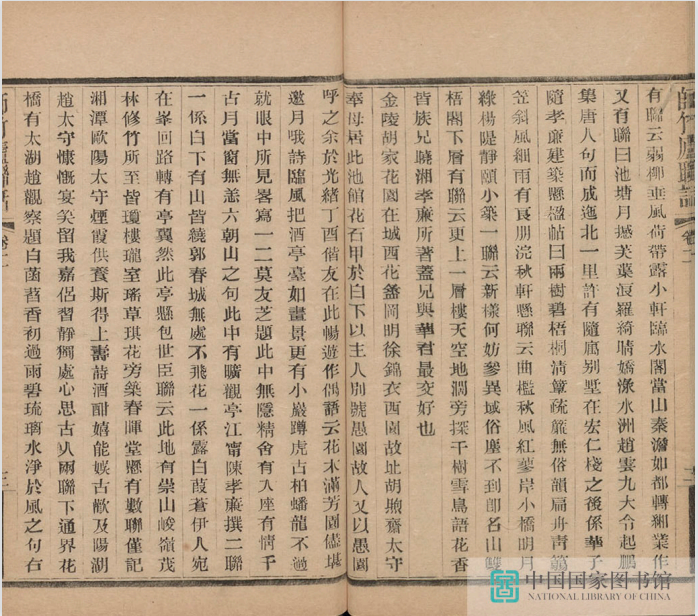 師竹廬聯話
卷十二
十二
有聯云弱柳垂風荷帶露小軒臨水閣當山秦澹如都轉緗業作
又有聯曰池塘月撼芙蕖浪羅綺晴嬌淥水洲趙雲九大令起鵬
集唐人句而成迤北一里許有隨廎別墅在宏仁棧之後係華子
隨孝廉建築懸楹帖曰雨樹碧梧桐清簟疏簾無俗韻扁舟青篛
笠斜風細雨有良朋浣秋軒懸聯云曲檻秋風紅蓼岸小橋明月
綠楊隄靜頤小築一聯云新樣何妨參異域俗塵不到卽名山雙
梧閣下層有聯云更上一層樓天空地濶旁探千樹雪鳥語花香
皆族兄曉湘孝廉所著蓋兄與華君最交好也
金陵胡家花園在城西花盝岡明徐錦衣西園故址胡煦齋太守
奉母居此池館花石甲於白下以主人別號愚園故人又以愚園
呼之余於光緒丁酉偕友在此暢遊作偶語云花木滿芳園儘堪
邀月哦詩臨風把酒亭臺如畫景更有小巖蹲虎古柏蟠龍不過
就眼中所見畧寫一二莫友芝題此中無隱精舍有人座有情千
古月當窗無恙六朝山之句此中有曠觀亭江甯陳孝廉撰二聯
一係白下有山皆繞郭春城無處不飛花一係露白葭蒼伊人宛
在峯回路轉有亭翼然此亭懸包世臣聯云此地有崇山峻嶺茂
林修竹所至皆瓊樓瓏室瑤草琪花旁築春暉堂懸有數聯僅記
湘潭歐陽太守煙霞供養斯得上壽詩酒酣嬉能娛古歡及陽湖
趙太守慷慨宴笑留我嘉侶習靜獨處心思古人兩聯下通界花
橋有太湖趙觀察題白菡萏香初過雨碧琉璃水淨於風之句右
師竹廬聯話
卷十二
十三
中国国家图书馆
NATIONAL LIBRARY OF CHINA